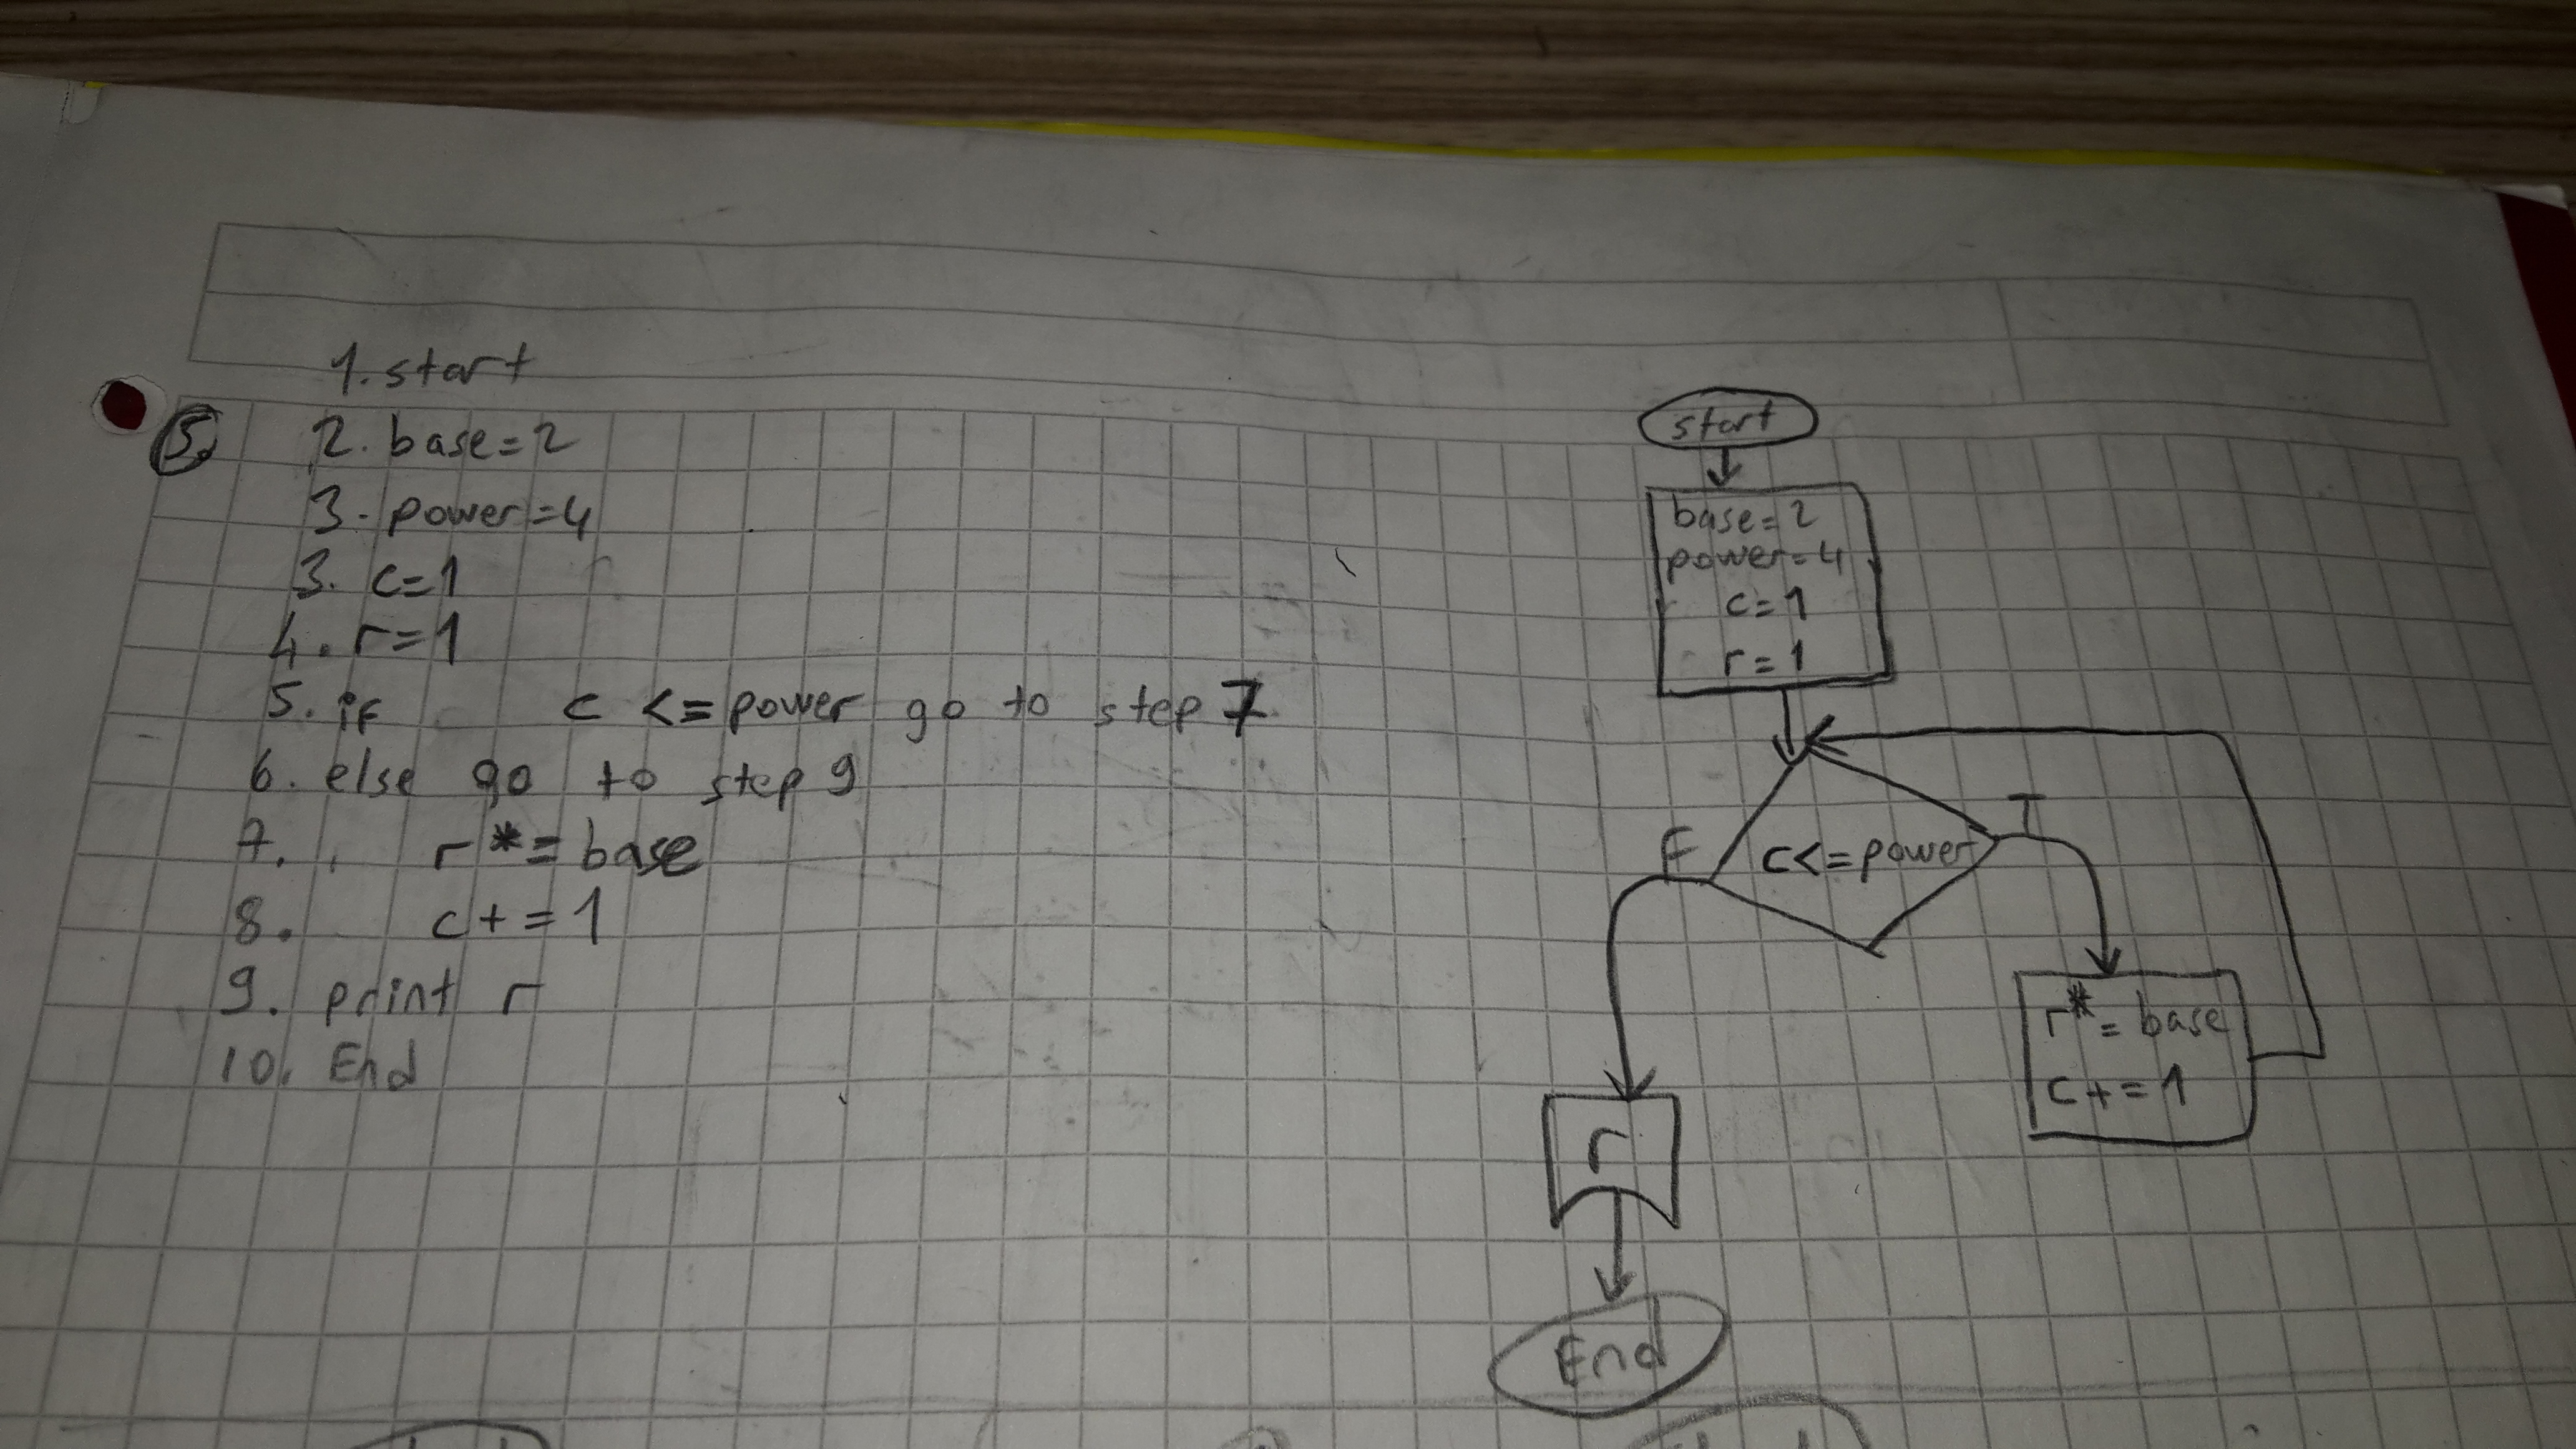 1. start
5.
2. base=2
3. power=4
3. c=1
4. r=1
5. if c <= power go to step 7
6. else go to step 9
7. r *= base
8. c+=1
9. print r
10. End
start
base=2
power=4
c=1
r=1
c<=power
F
T
r*= base
c+=1
r
End